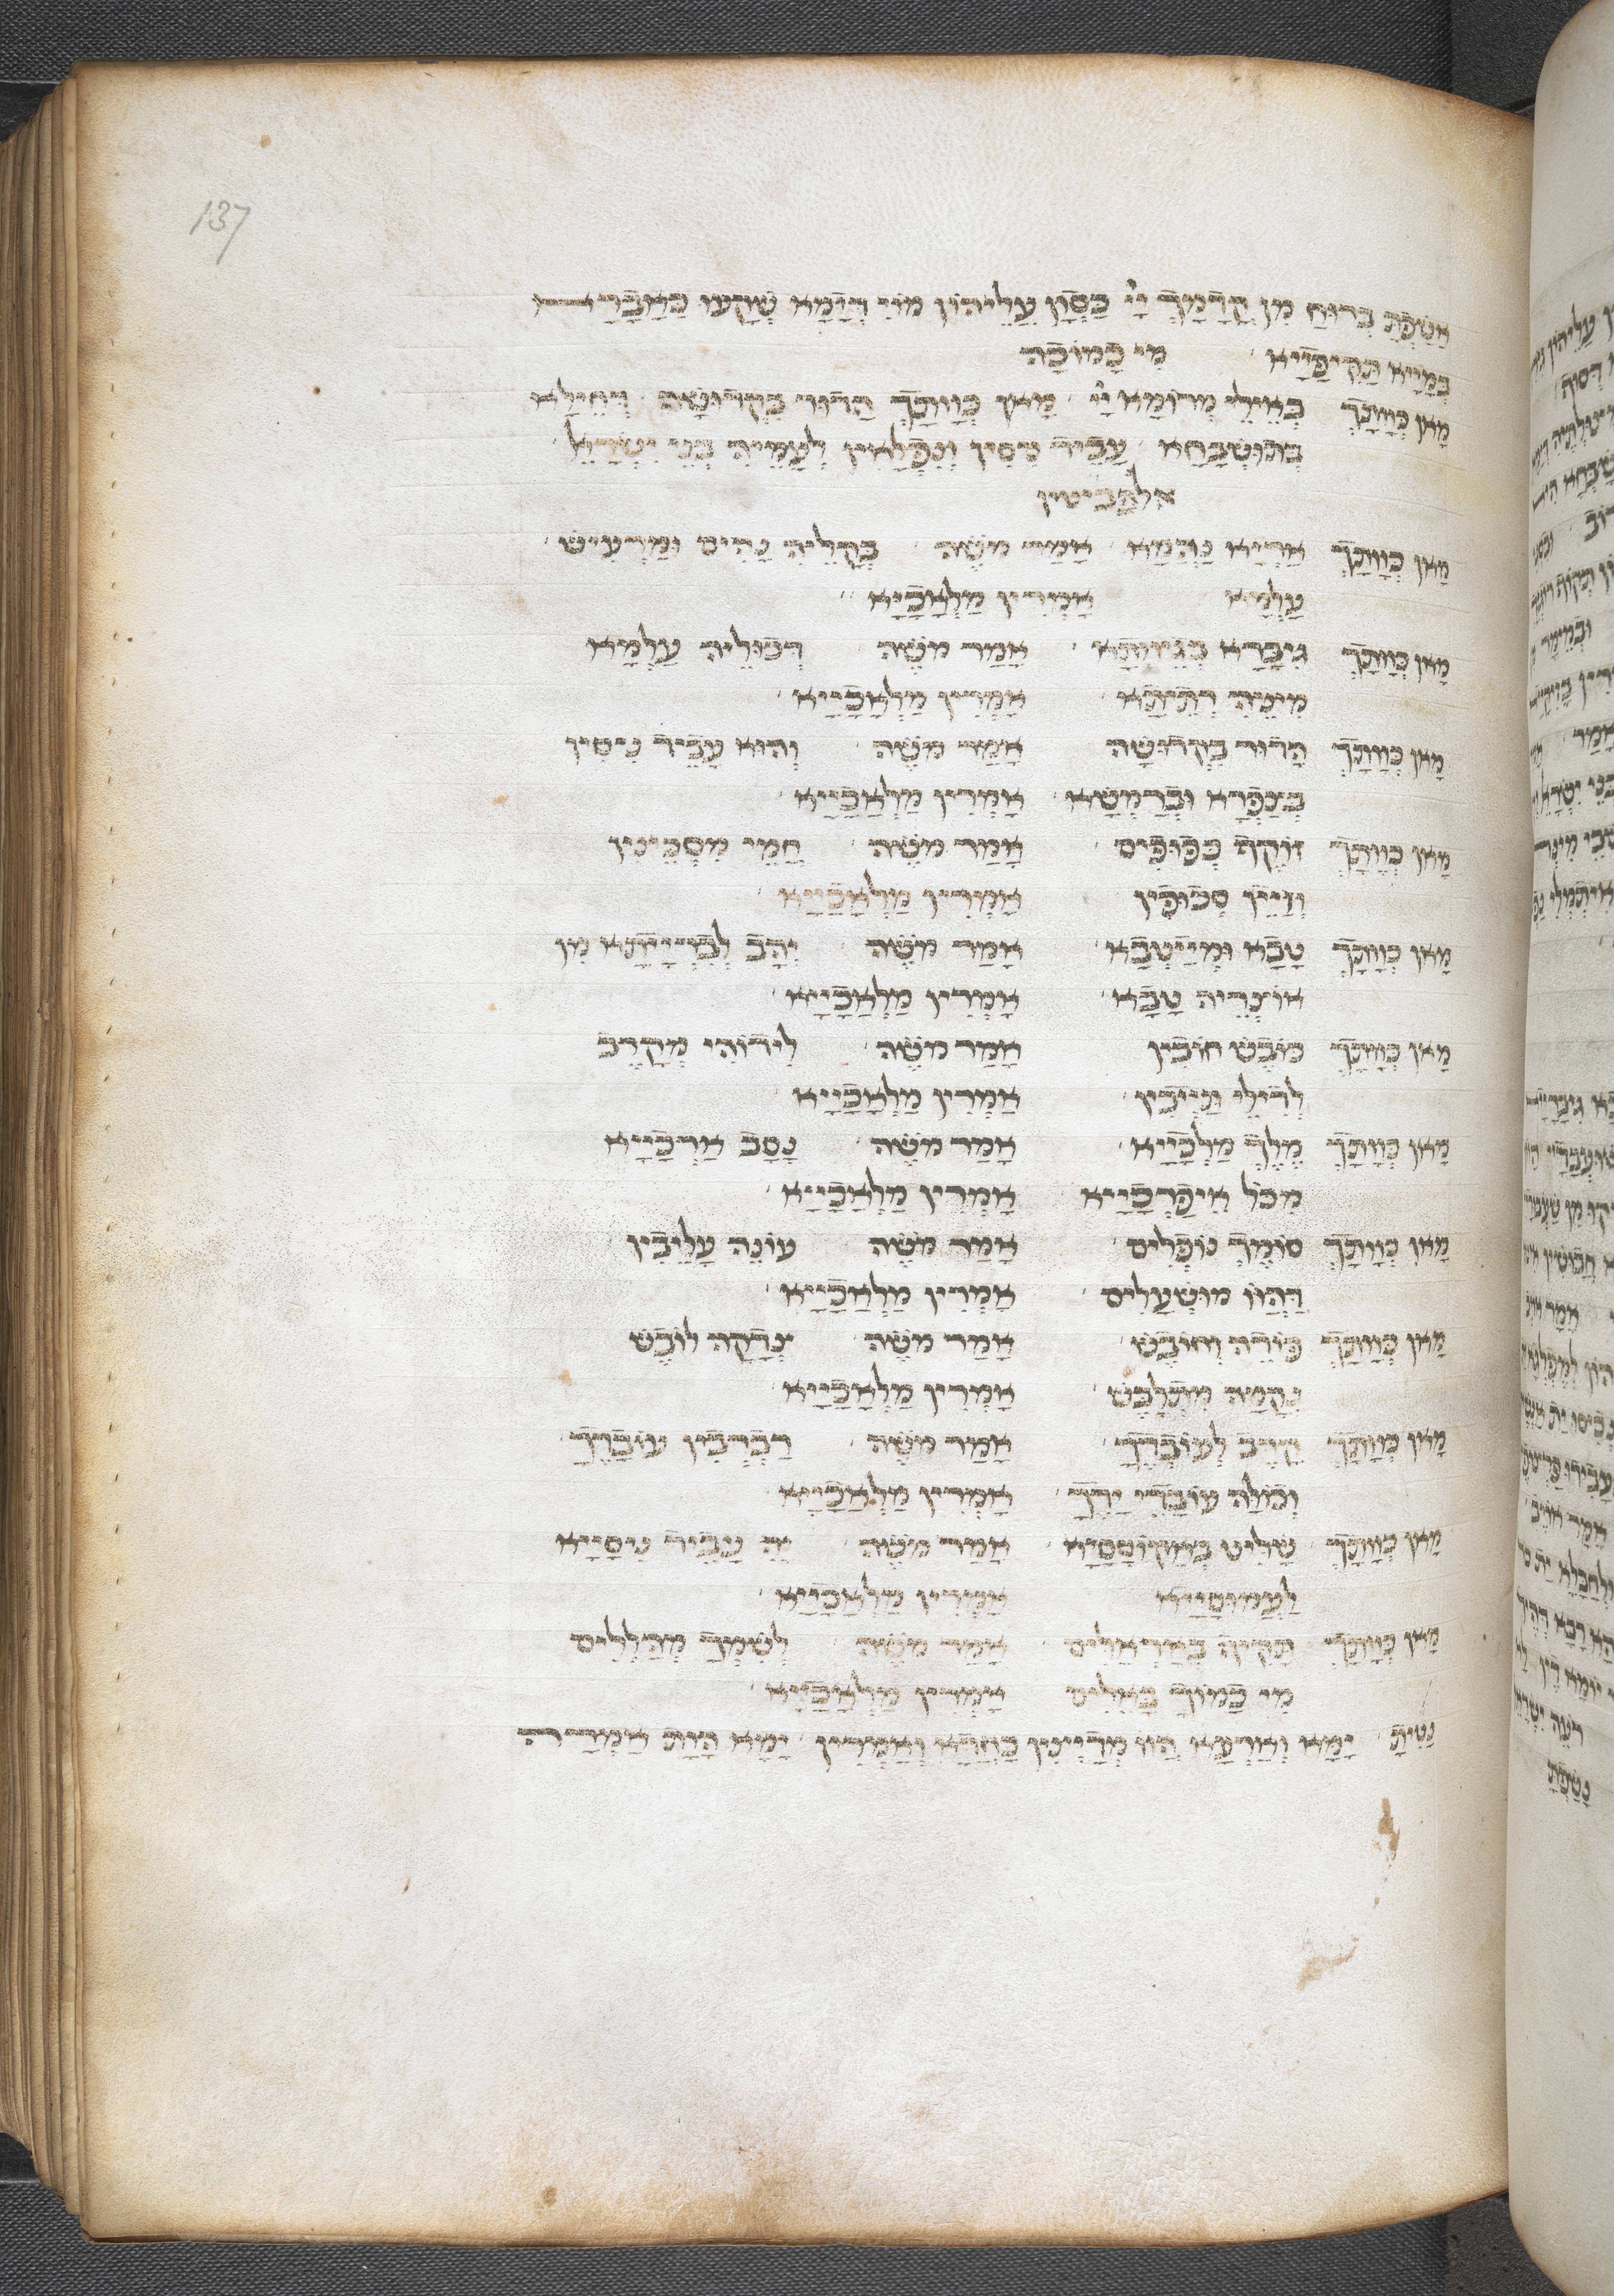 137
אשפת ברוח מן קדמך יי כסון עליהון מוי דימא שקעו כאברא
במייא תקיפייא מי כמוכה
מאן כוותך באילי מרומא יי מאן כוותך הדור בקדושה דחילא
בתושבחא עביד ניסין ונפלאין לעמיה בני ישראל
אלפביטין
מאן כוותך אריא נהמא אמר משה בקליה נהים ומרעיש
עלמא אמרין מלאכייא
מאן כוותך גיברא אמר משה דכוליה עלמא
מיניה רתיתא אמרין מלאכייא
מאן כוותך הדור בקדושה אמר משה והוא עביד ניסין
בצפרא וברמשא אמרין מלאכייא
מאן כוותך זוקף כפופים אמר משה חמי מסכינין
וזיין סכופין אמרין מלאכייא
מאן כוותך טבא ומייטבא אמר משה יהב לברייתא מן
אוצריה טבא אמרין מלאכייא
מאן כוותך כובש חובין אמר משה לידוהי מקרב
לדילי תייבין אמרין מלאכייא
מאן כוותך מלך מלכייא אמר משה נסב ארכייא
מכל איפרכייא אמרין מלאכייא
מאן כוותך סומך נופלים אמר משה עונה עלובין
דהוו מושעלים אמרין מלאכייא
מאן כוותך פודה וחובש אמר משה צדקה לובש
נקמה מתלבש אמרין מלאכייא
מאן כוותך קרב לעובדך אמר משה רברבין עובדך
וכולה עובדי ידך אמרין מלאכייא
מאן כוותך שליט אמר משה יה עביד ניסייא
לעמוסייא אמרין מלאכייא
מאן כוותך תקיף באראלים אמר משה לשמך מהללים
מי כמוך באלים אמרין מלאכייא
נטית ימא וארעא הוו מדיינין כחדא ואמרין ימא הוות אמרה